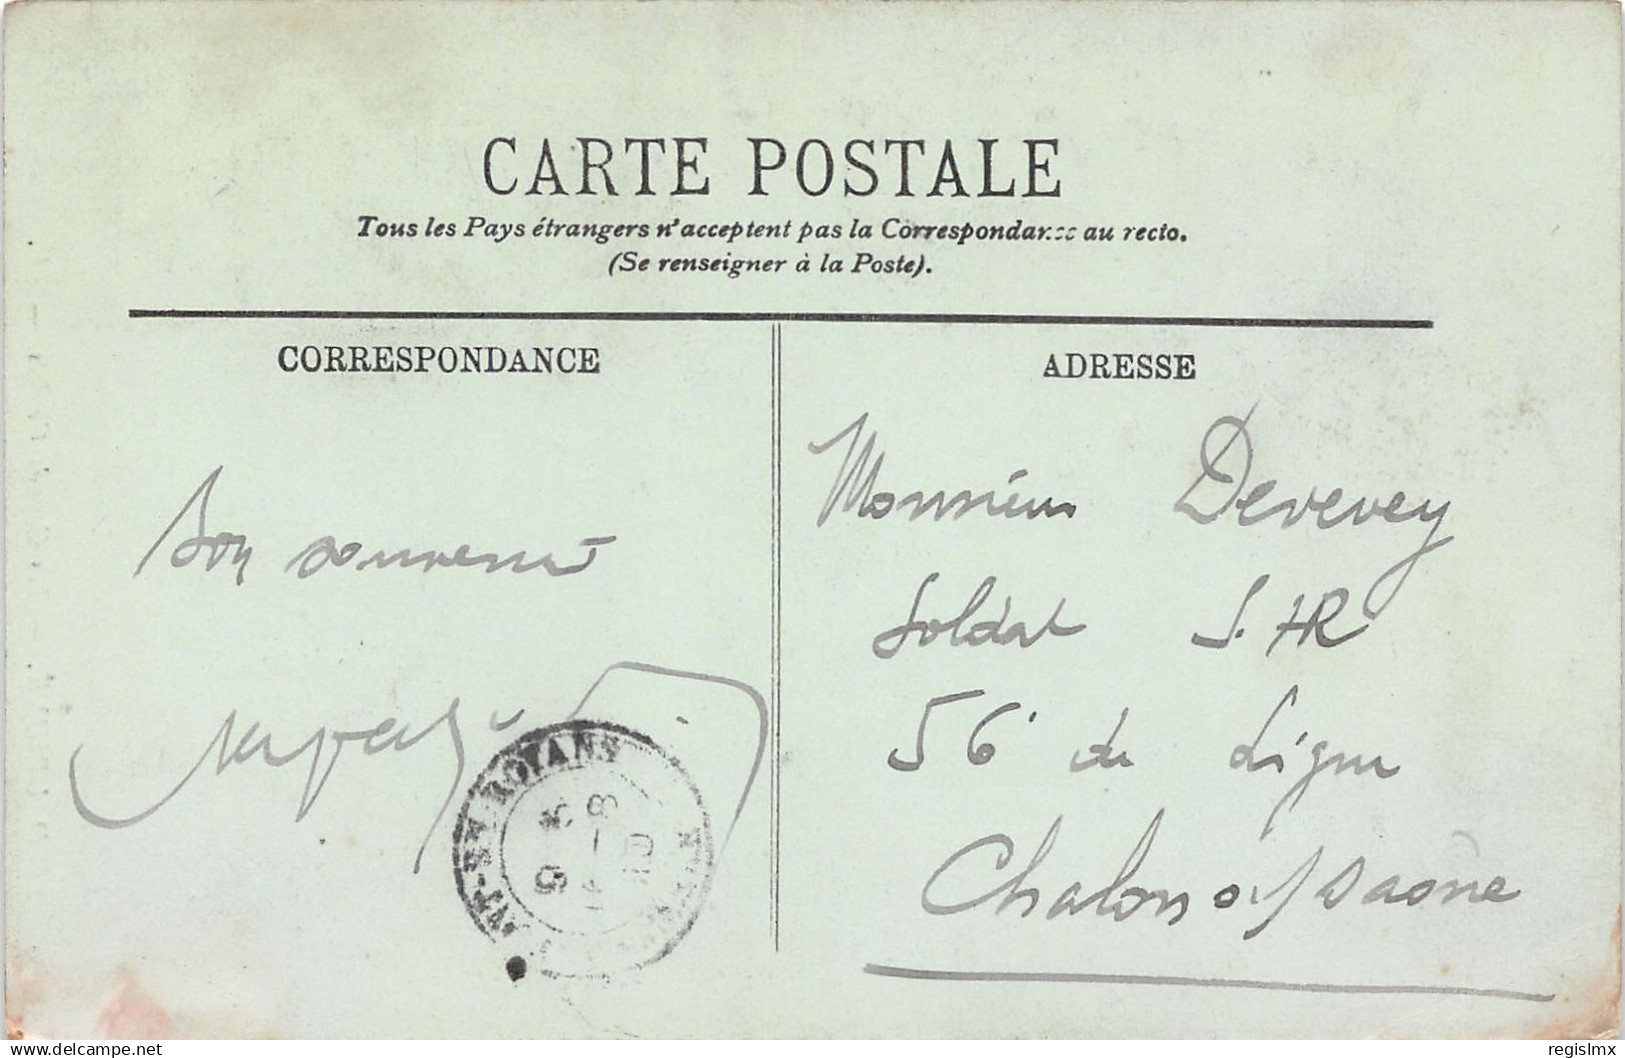 CARTE POSTALE
Tous les Pays étrangers n'acceptent pas la Correspondance au recto.
(Se renseigner à la Poste).
CORRESPONDANCE
ADRESSE
Bon souvenir
Monsieur Devevey
Soldat S. HR
56e de Ligne
Chalon s/ Saône
EN-ROYANS
delcampe.net
regislmx